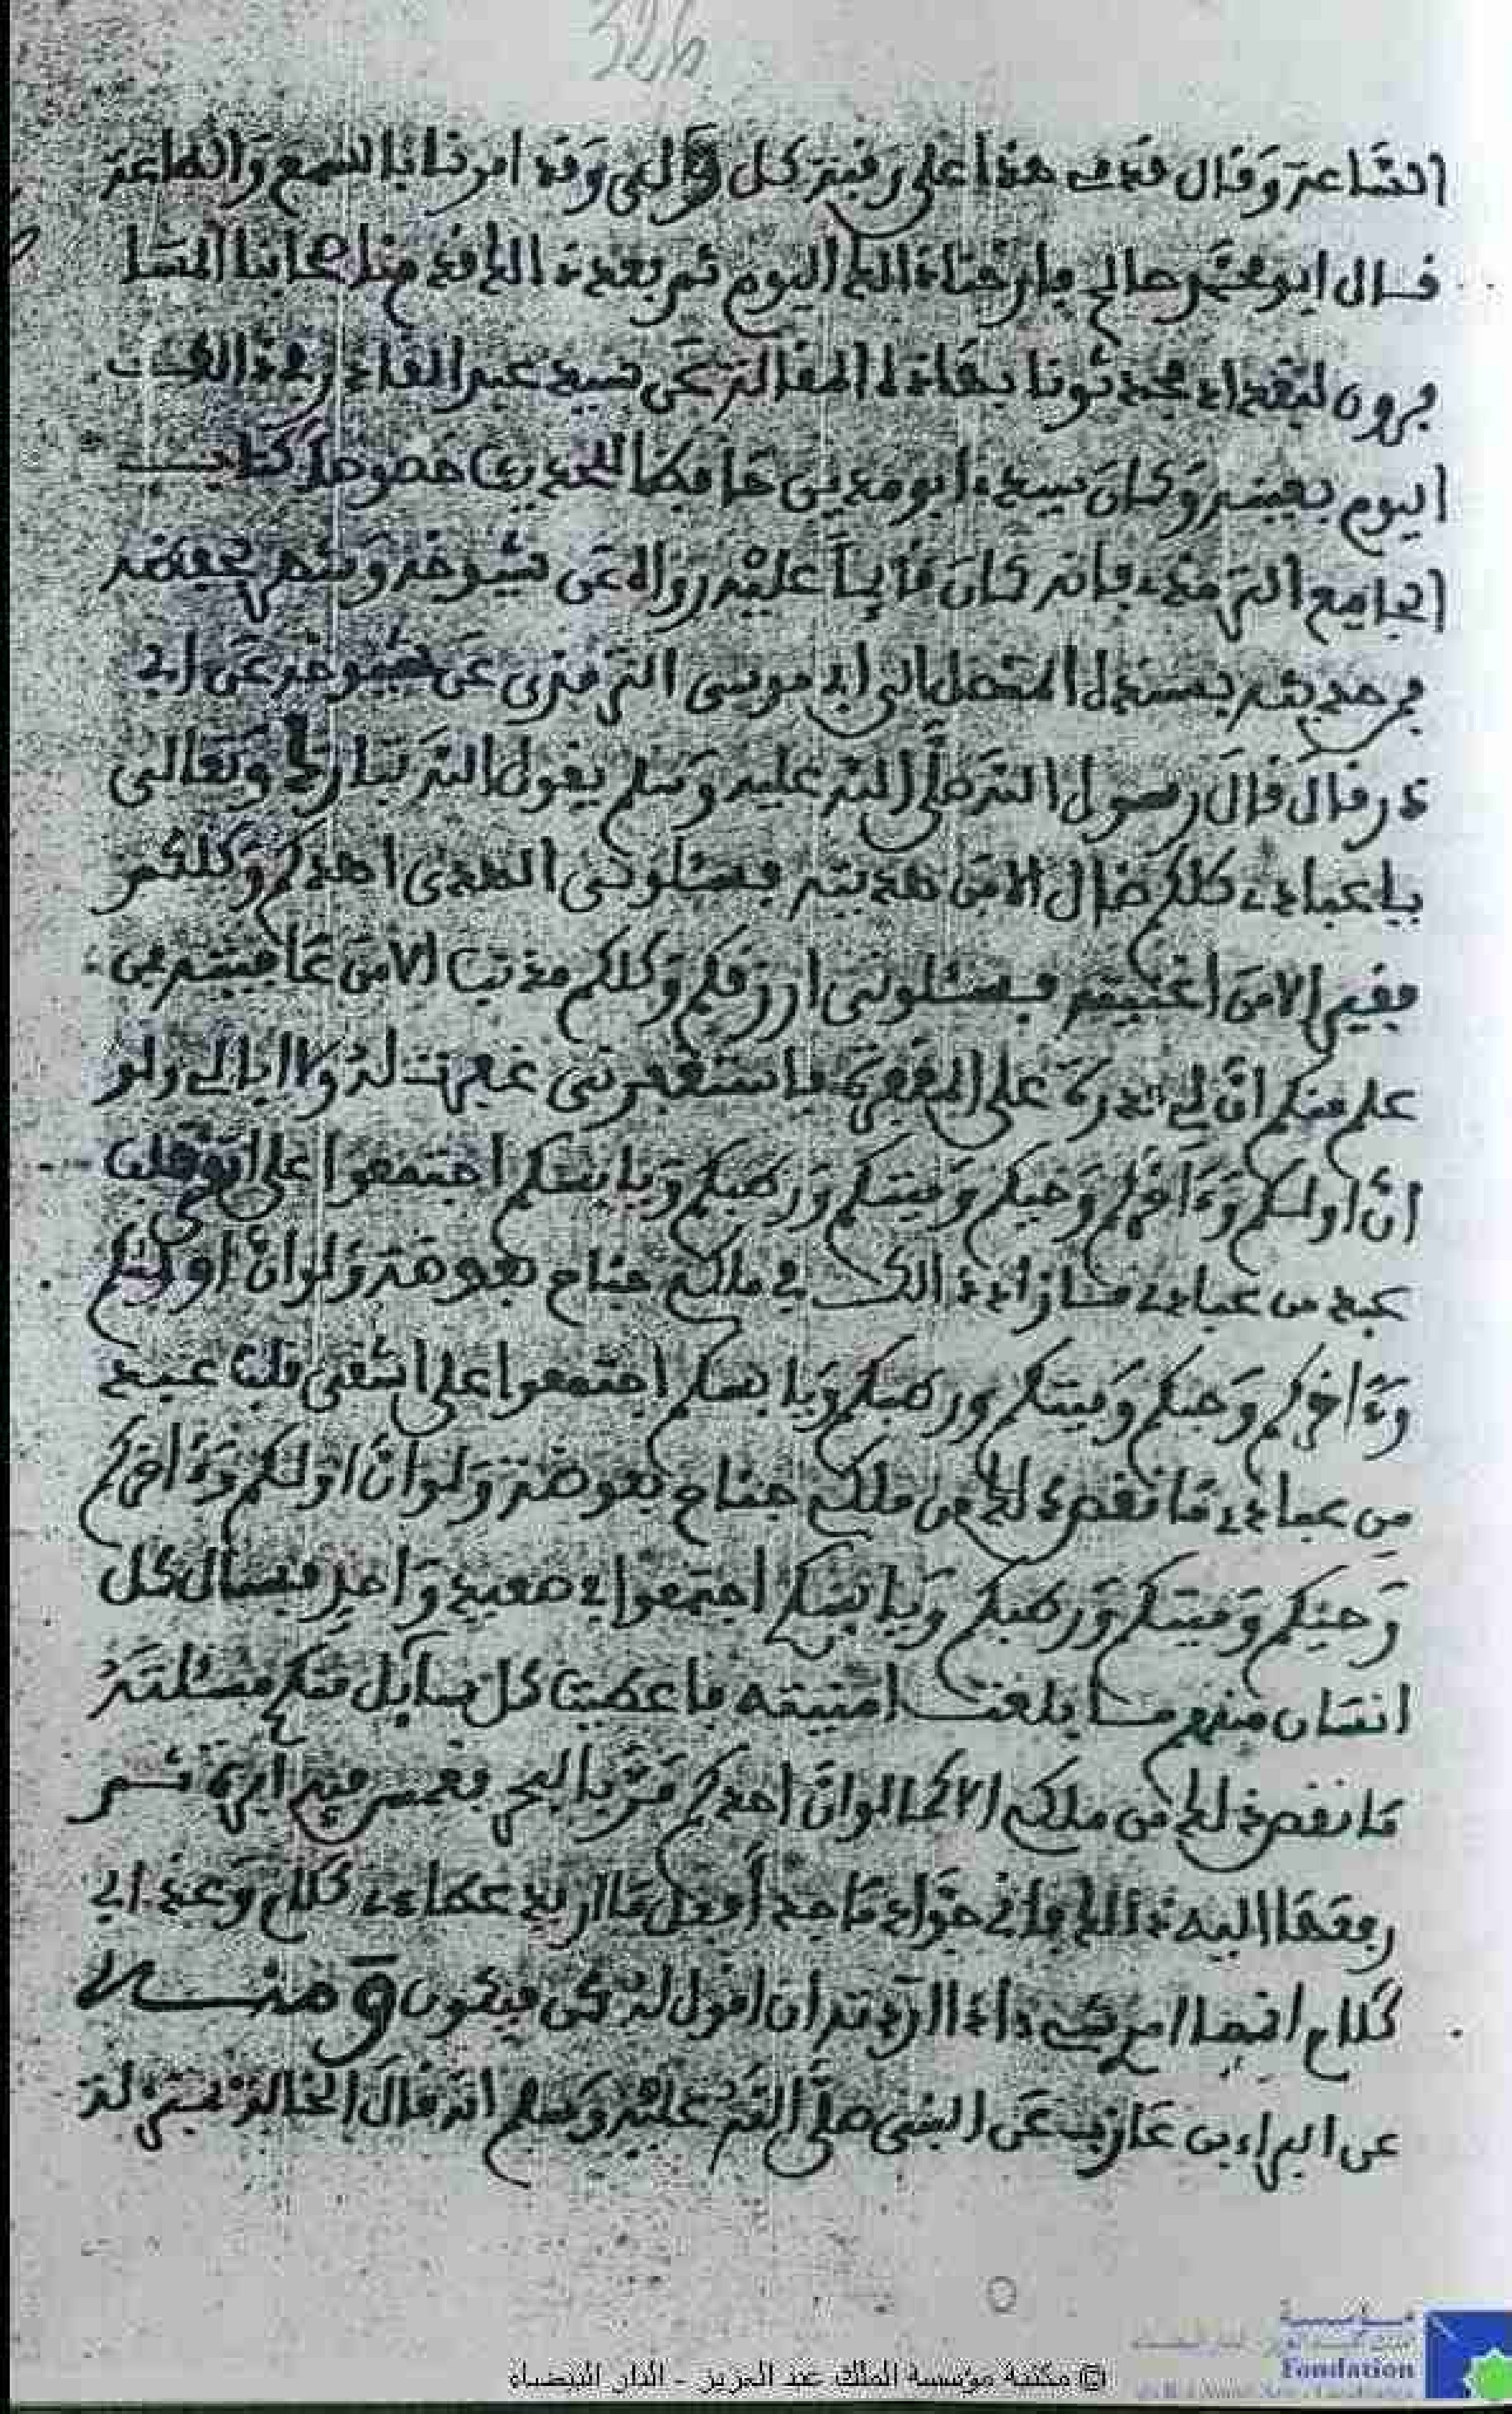 الساعة وقال قدمي هذا على رقبة كل ولي وقد امرنا بالسمع والطاعة
قال ابو محمد صالح فارخناه الك اليوم ثم بعد ذالك قدم منا اصحابنا المسا
فرون لبغداد فحدثونا بهاذه المقالة عن سيد عبد القادر في ذالك
اليوم بعينه وكان سيد ابو مدين حافظا للحديث خصوصا كتاب
الجامع الترمذ فانه كان قايما عليه رواه عن شيوخه وشهر بحفظه
فمن حديثه بسنده المتصل الى ابى موسى الترمذي عن شيوخه عن ابى
ذر قال قال رسول الله صلى الله عليه وسلم يقول الله تبارك وتعالى
يا عبادى كلكم ضال الا من هديته فسئلونى الهدى اهدكم وكلكم
فقير الا من اغنيته فسئلونى ارزقكم وكلكم مذنب الا من عافيته فمن
علم منكم ان لى قدرة على المغفرة فاستغفرنى غفرت له ولا ابالى ولو
ان اولكم وءاخركم وحيكم وميتكم ورطبكم ويابسكم اجتمعوا على اتقى قلب
عبد من عبادى ما زاد ذالك في ملكى جناح بعوضة ولو ان اولكم
وءاخركم وحيكم وميتكم ورطبكم ويابسكم اجتمعوا على اشقى قلب عبد
من عبادى ما نقص ذلك من ملكى جناح بعوضة ولو ان اولكم وءاخركم
وحيكم وميتكم ورطبكم ويابسكم اجتمعوا فى صعيد واحد فسال كل
انسان منهم ما بلغت امنيته فاعطيت كل سايل منكم مسئلته
ما نقص ذلك من ملكى الا كما لو ان احدكم مر بالبحر فغمس فيه ابرة ثم
رفعها اليه ذالك فانى جواد ماجد افعل ما اريد عطاءى كلام وعذابى
كلام انما امرى لشى اذا اردته ان اقول له كن فيكون ومنها
عن البراء بن عازب عن النبى صلى الله عليه وسلم انه قال الخالة بمنزلة
© مكتبة مؤسسة الملك عبد العزيز - الدار البيضاء
مؤسسة
Fondation